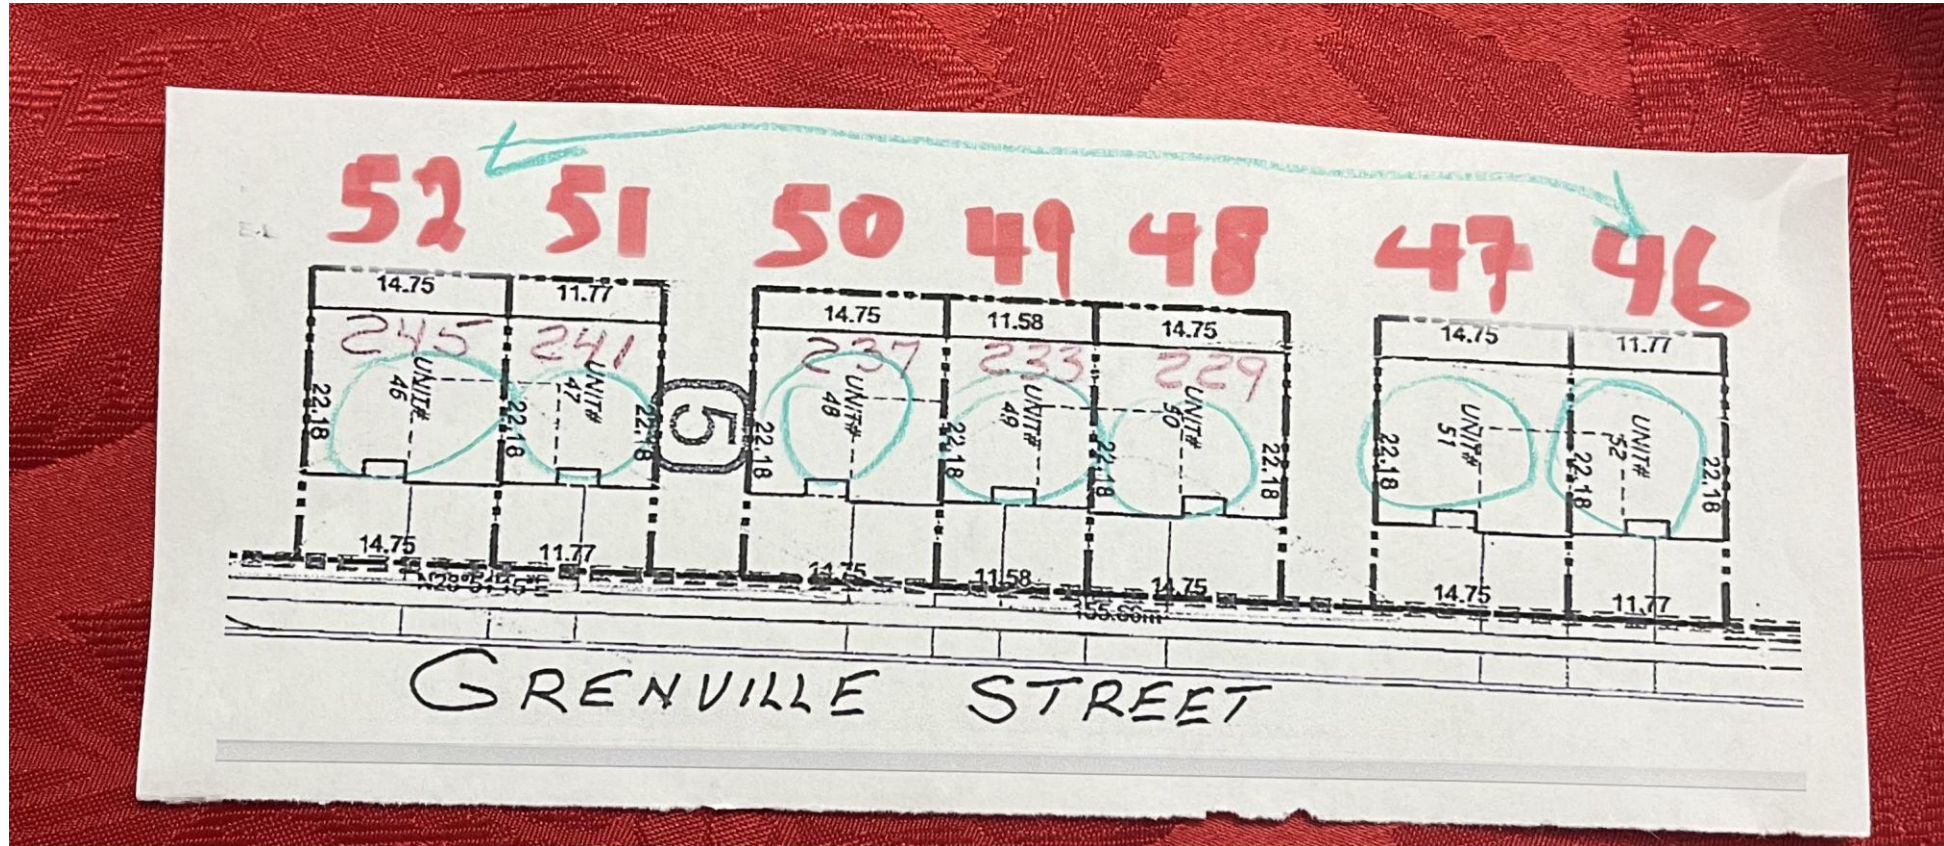 52 51 50 49 48 47 46
14.75 11.77 14.75 11.58 14.75 14.75 11.77
245 241 237 233 229
UNIT# 46
UNIT# 47
UNIT# 48
UNIT# 49
UNIT# 50
UNIT# 51
UNIT# 52
22.18 22.18 22.18 22.18 22.18 22.18 22.18 22.18 22.18 22.18
5
14.75 11.77 14.75 11.58 14.75 14.75 11.77
GRENVILLE STREET